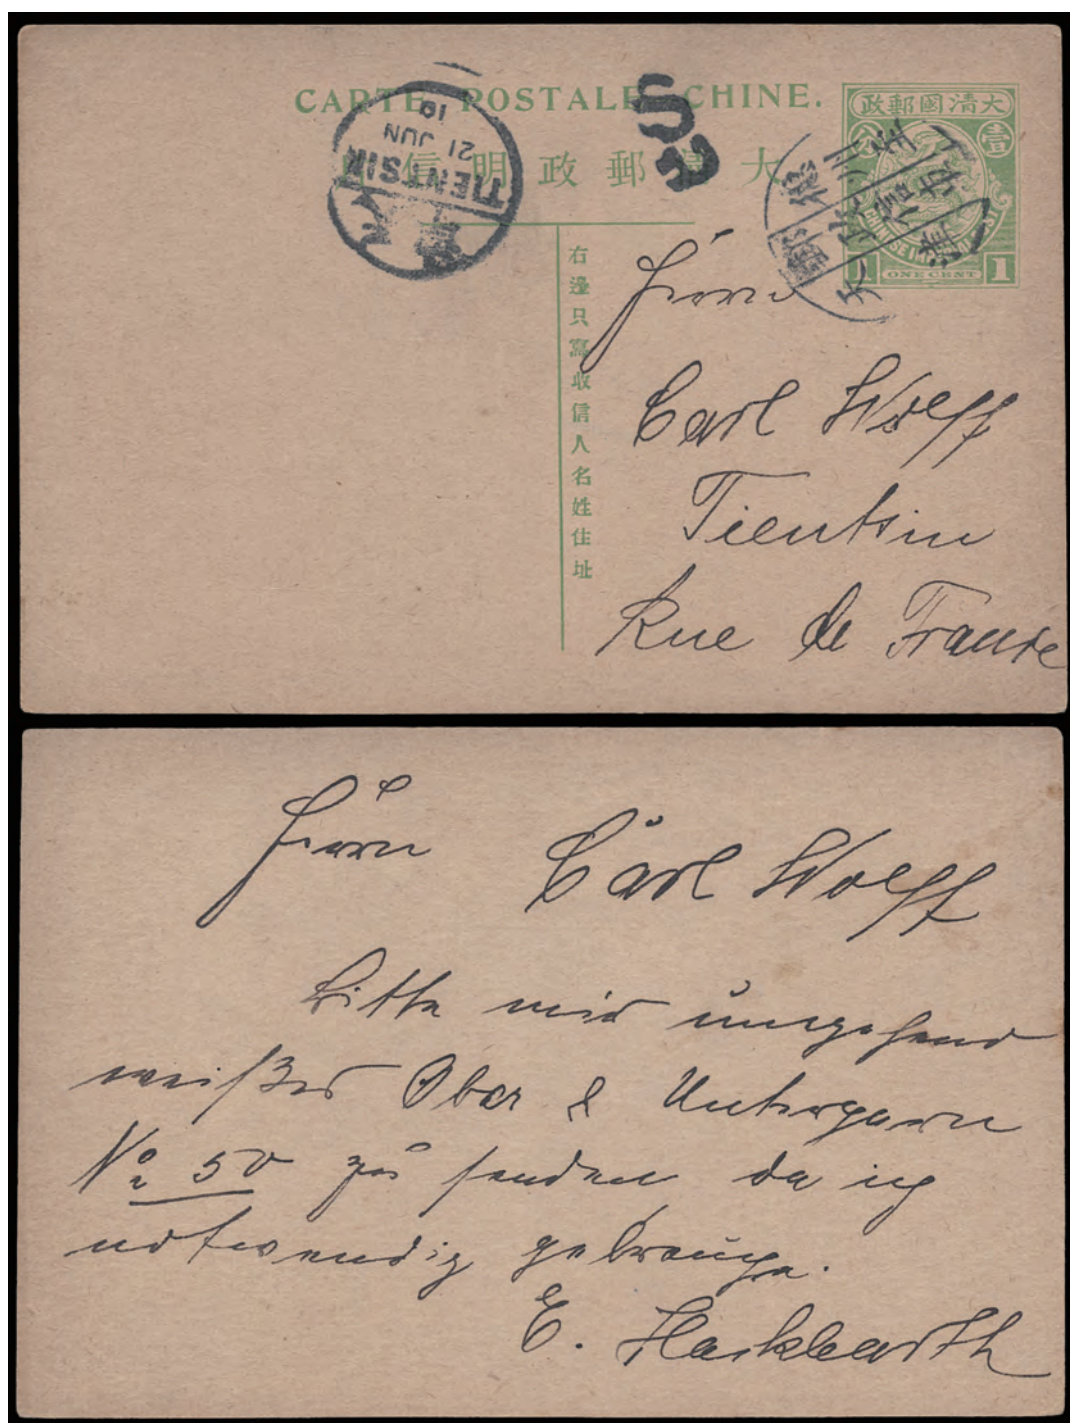 CARTE POSTALE CHINE.
大清郵政明信片
大清國郵政
壹 分
CHINESE IMPERIAL POST
1 ONE CENT 1
TIENTSIN
21 JUN
10
右邊只寫收信人名姓住址
Herrn
Carl Wolff
Tientsin
Rue de France
Herrn Carl Wolff
Bitte mir umgehend
weißes Ober & Untergarn
No 50 zu senden da ich
notwendig gebrauche.
E. Hackbarth